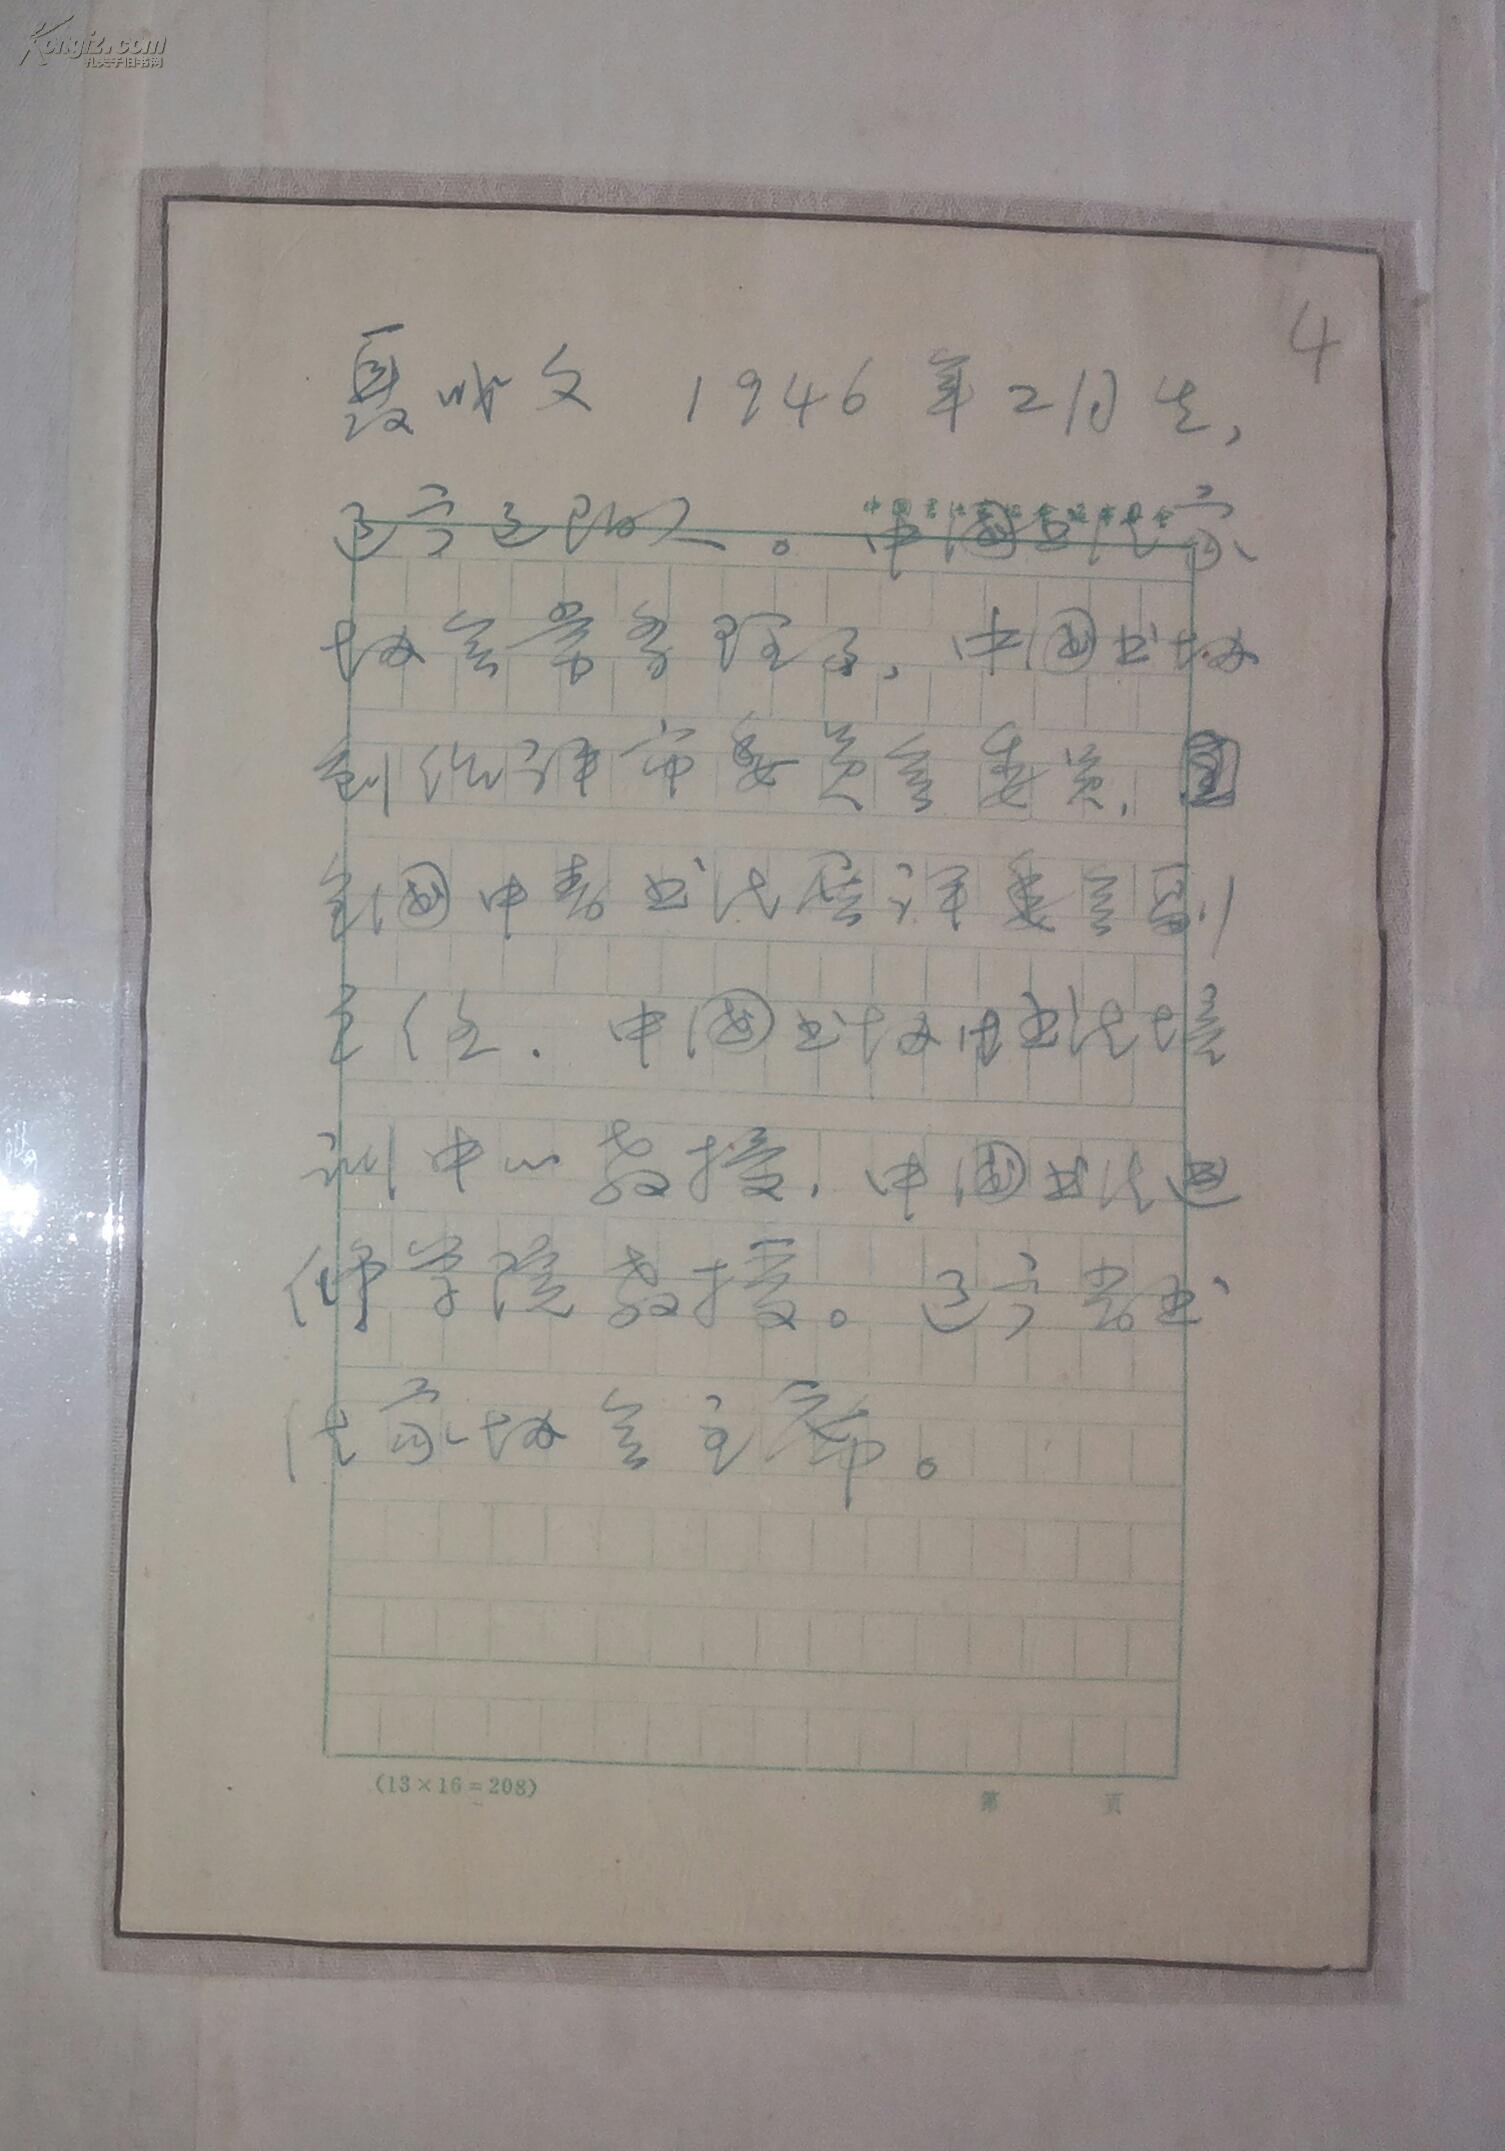 Kongfz.com
孔夫子旧书网
4
聂成文 1946年2月生，
辽宁辽阳人。中国书法家
协会常务理事，中国书协
创作评审委员会委员，
全国中青书法展评委会副
主任．中国书协书法培
训中心教授，中国书法进
修学院教授。辽宁省书
法家协会主席。
(13×16=208)
第 页